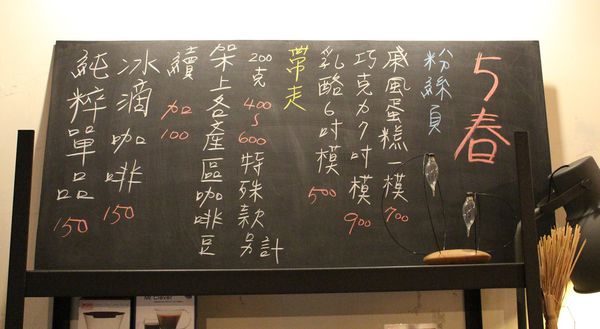 5春
粉絲頁
戚風蛋糕一模 700
巧克力7吋模 900
乳酪6吋模 500
帶走
200克 400~600 特殊款另計
架上各產區咖啡豆
續 加100
冰滴咖啡 150
純粹單品 150